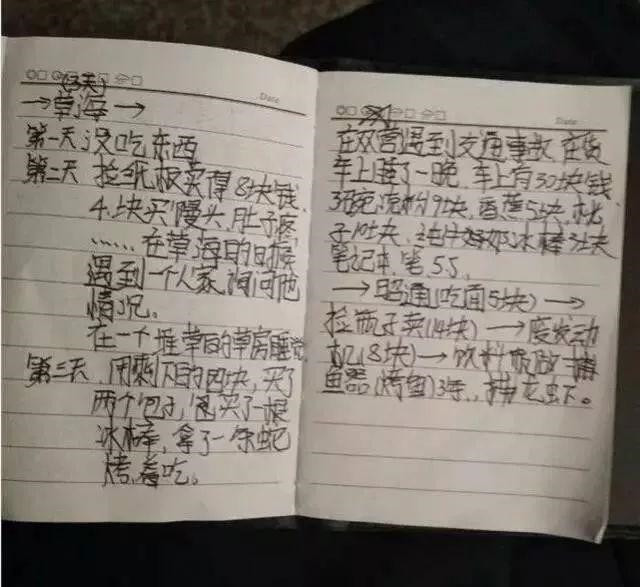 (3天)
→草海→
第一天没吃东西
第二天 捡纸板卖得8块钱,
4.块买馒头,肚子疼
……在草海的时候
遇到一个人家,询问他
情况。
在一个堆草的草房睡觉
第三天,用剩下的四块,买了
两个包子,买了一根
冰棒,拿了一条蛇
烤着吃。
Date
Date
在双营遇到交通事故,在货
车上睡了一晚,车上有30块钱,
3碗凉粉9块,香蕉5块,桃
子10块,冰棒3块
笔记本,笔,5.5,
→昭通(吃面5块)→
捡瓶子卖(14块)→废发动
机(8块)→饮料瓶做捕
鱼器(烤鱼)3条,捕龙虾。